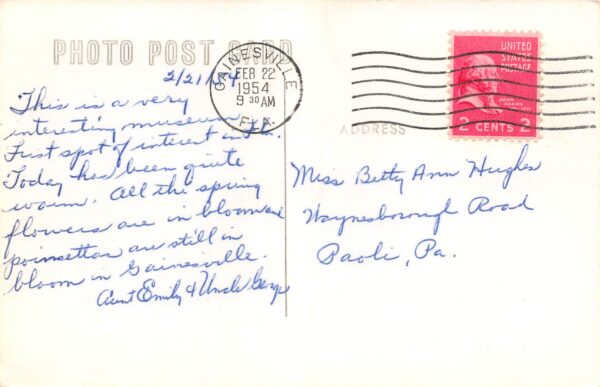 PHOTO POST CARD
2/21/54
This is a very
interesting museum
First spot of interest in Fla.
Today has been quite
warm. All the spring
flowers are in bloom and
poinsettas are still in
bloom in Gainesville.
Aunt Emily & Uncle George
GAINESVILLE
FEB 22
1954
9 30 AM
FLA.
UNITED
STATES
POSTAGE
JOHN
ADAMS
2 CENTS 2
ADDRESS
Miss Betty Ann Hughes
Waynesborough Road
Paoli, Pa.